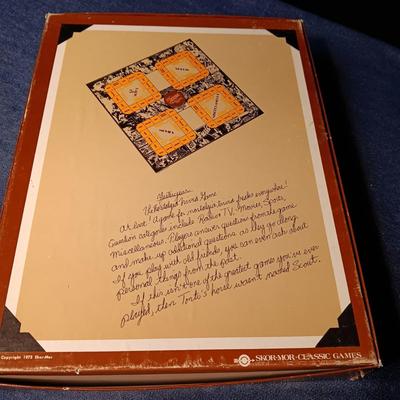 Yesteryear:
The Nostalgia Trivia Game
At last! A game for nostalgia trivia freaks everywhere!
Question categories include Radio & TV, Movies, Sports,
Miscellaneous. Players answer questions from the game
and make up additional questions as they go along.
If you play with old friends, you can even ask about
personal things from the past.
If this isn't one of the greatest games you've ever
played, then Tonto's horse wasn't named Scout.
Copyright 1973 Skor-Mor
SKOR-MOR-CLASSIC GAMES